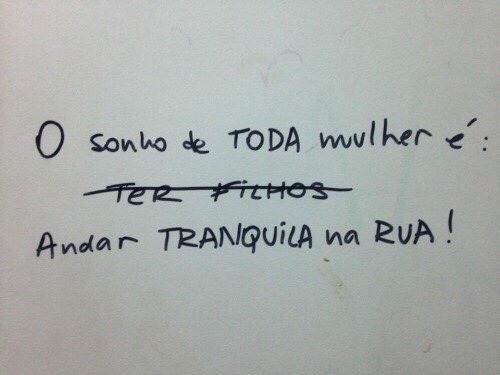 O sonho de TODA mulher é:
TER FILHOS
Andar TRANQUILA na RUA!